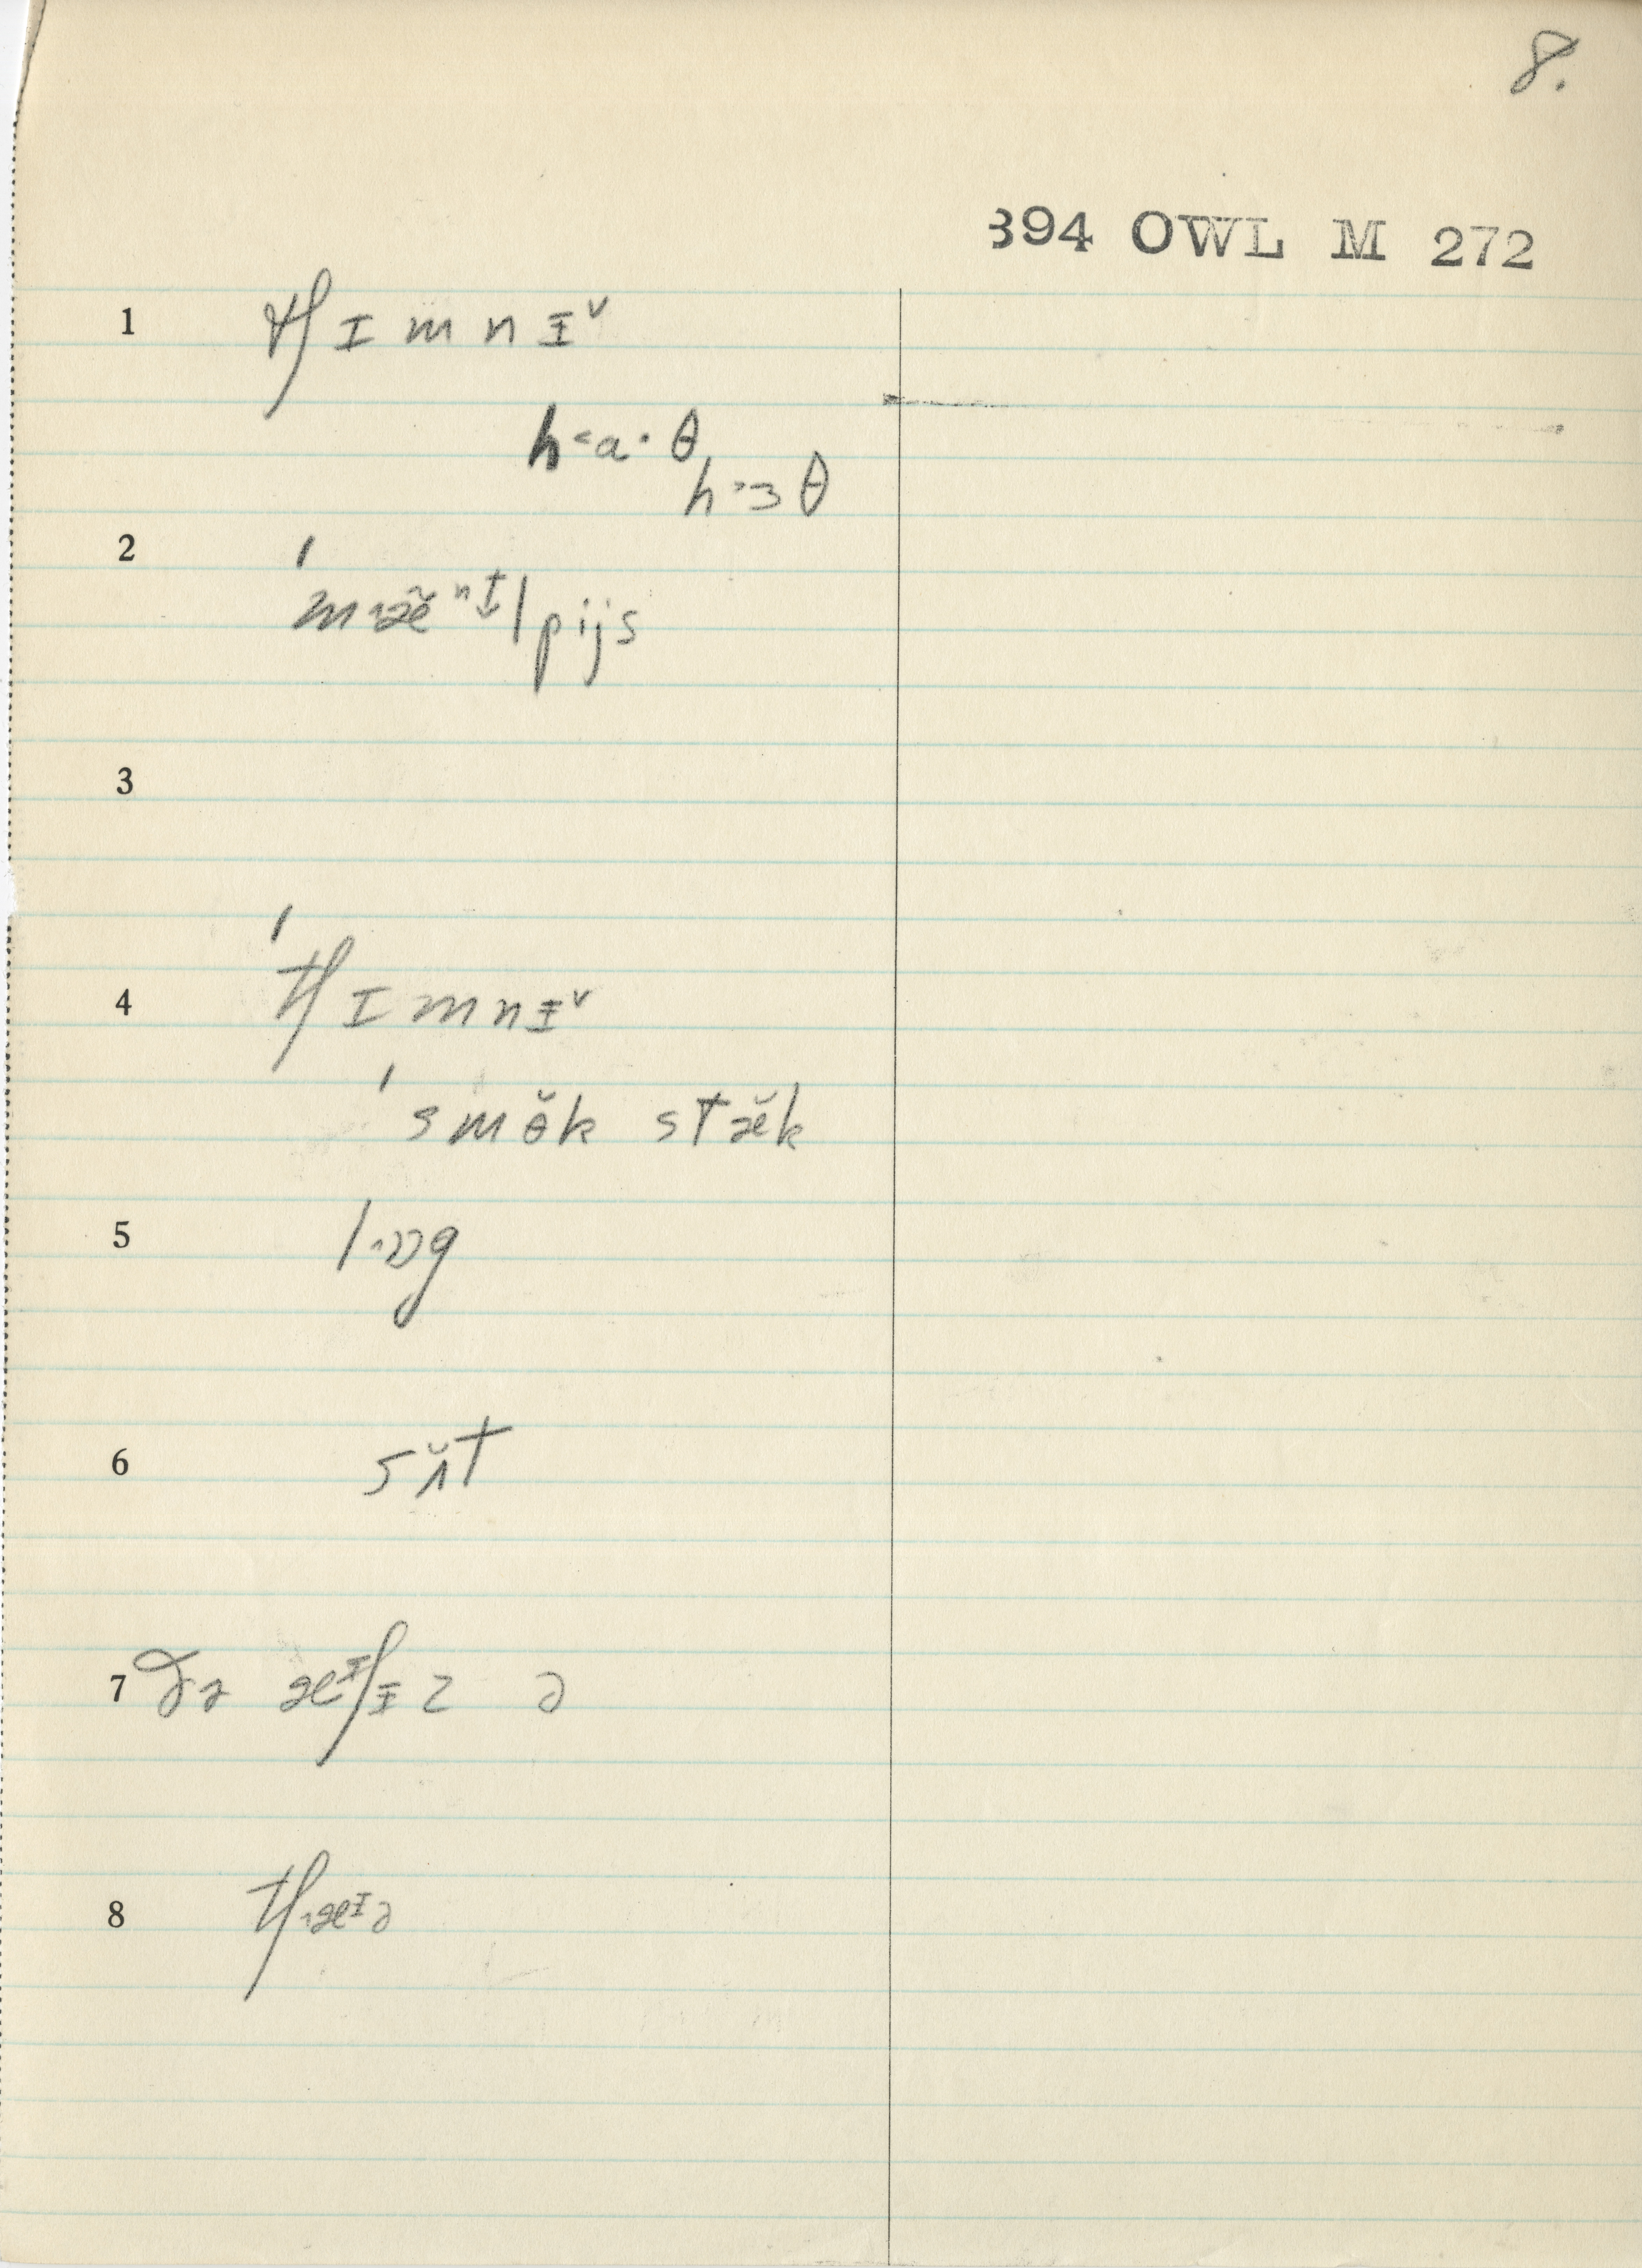 8.
394 OWL M 272
1 tʃ ɪ m n ɨᵛ
h˂a· θ
h˃ɜ θ
2 ˈm˄æ̆ⁿᵗ̬lpijs
3
4 ˈtʃ ɪ m n ɨᵛ
ˈs m ɵ̆ k s t æ̆ k
5 l˄ɒg
6 s ʌ̆ t
7 ðə æᶦʃɨz ə
8 tʃ˄æᶦə